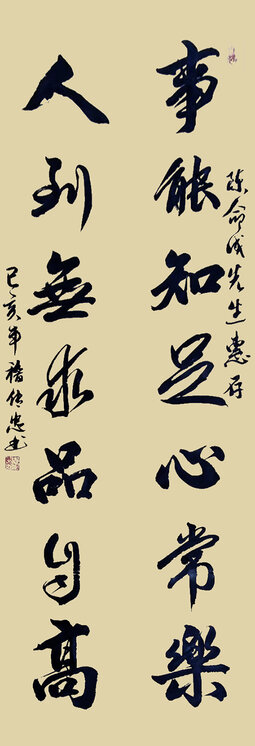 事能知足心常樂
陈命成先生惠存
人到無求品自高
己亥年 传忠书